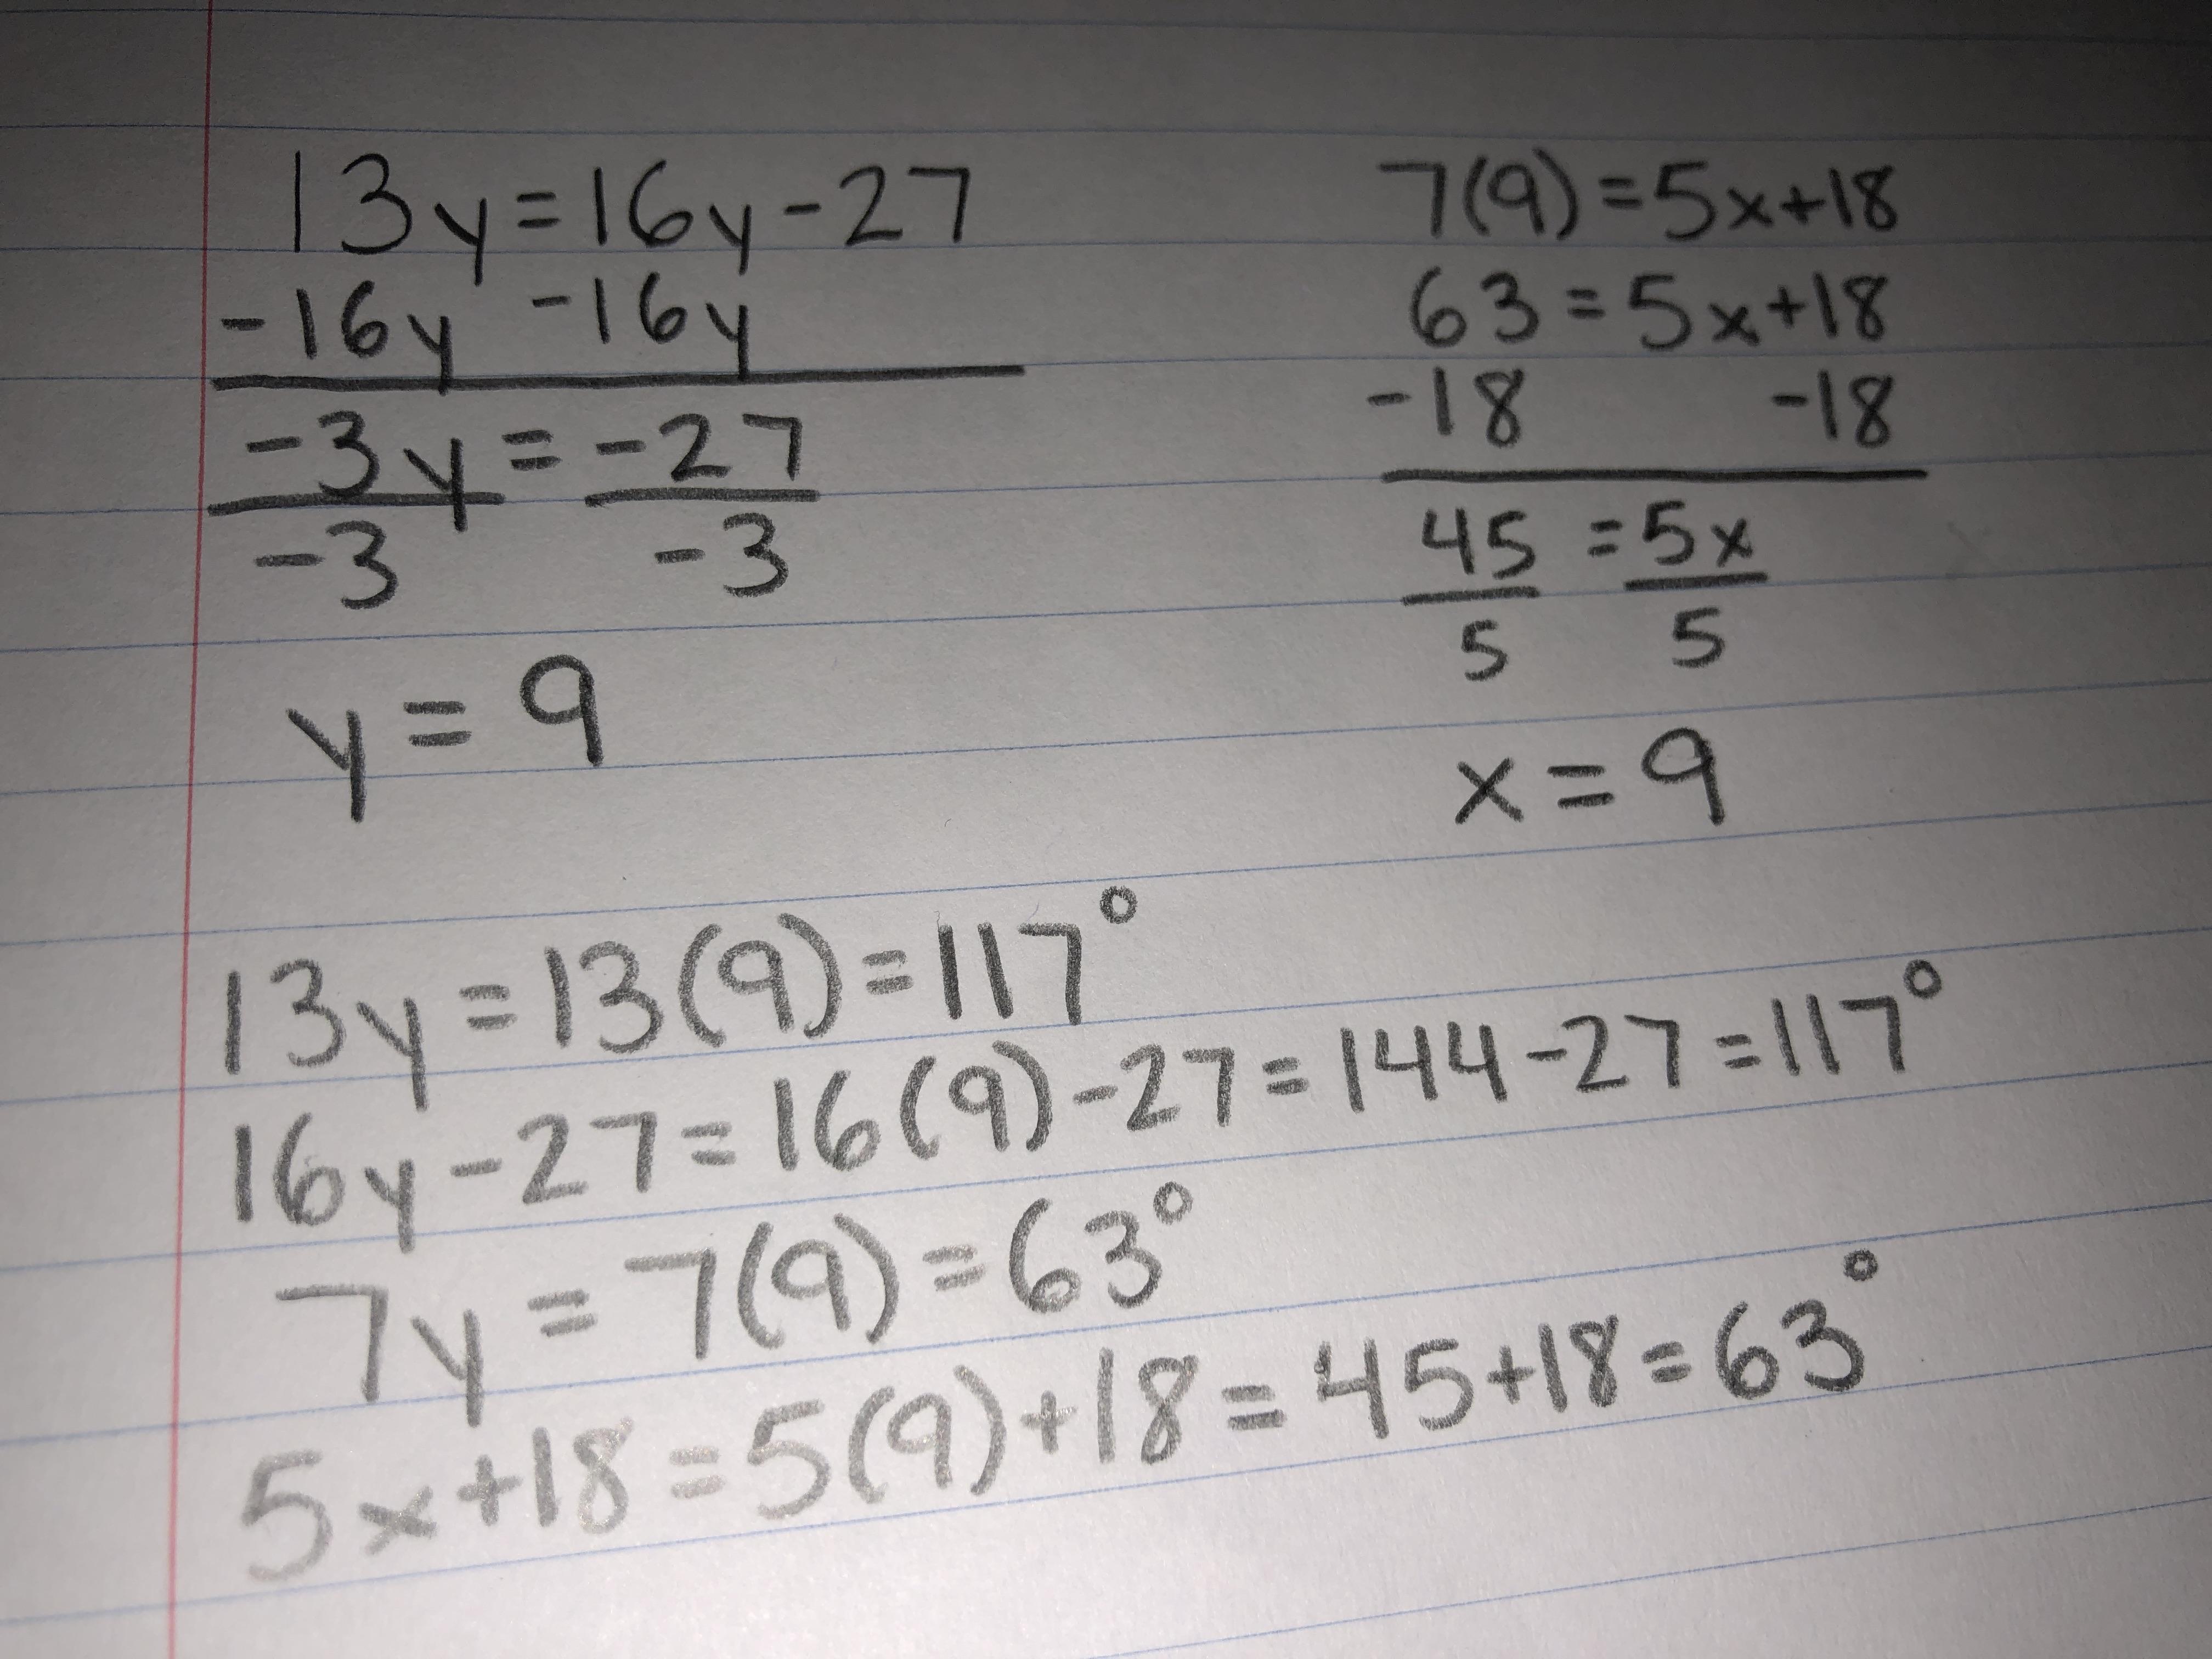 13y=16y-27
-16y -16y
-3y = -27
-3 -3
y = 9
7(9)=5x+18
63=5x+18
-18 -18
45 =5x
5 5
x=9
13y=13(9)=117°
16y-27=16(9)-27=144-27=117°
7y=7(9)=63°
5x+18=5(9)+18=45+18=63°